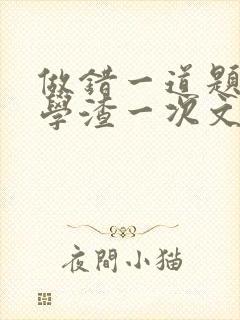 做錯一道題
學渣一次文
夜間小猫